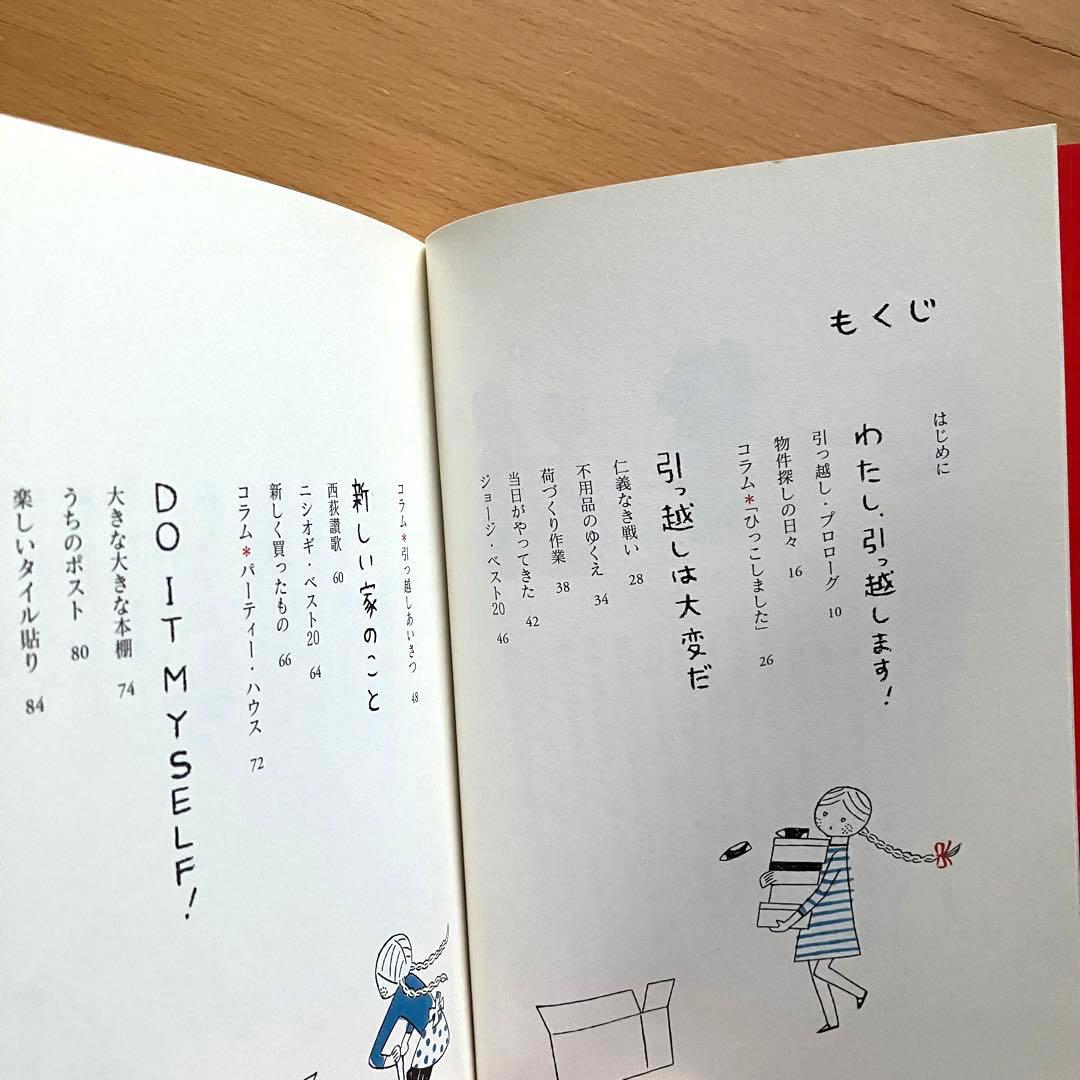 もくじ
はじめに
わたし、引っ越します！
引っ越し・プロローグ 10
物件探しの日々 16
コラム＊「ひっこしました」 26
引っ越しは大変だ
仁義なき戦い 28
不用品のゆくえ 34
荷づくり作業 38
当日がやってきた 42
ジョージ・ベスト20 46
コラム＊引っ越しあいさつ 48
新しい家のこと
西荻讃歌 60
ニシオギ・ベスト20 64
新しく買ったもの 66
コラム＊パーティー・ハウス 72
DO IT MYSELF!
大きな大きな本棚 74
うちのポスト 80
楽しいタイル貼り 84